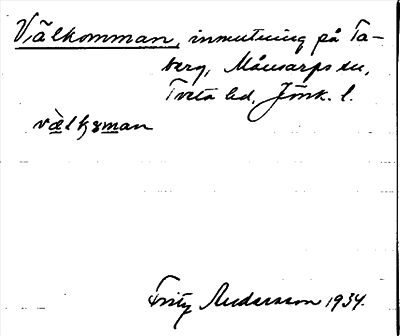 Välkomman, inmutning på Ta-
berg, Månsarps sn,
Tveta hd, Jönk. l.
vàlkₒman
Fritz Andersson 1934.